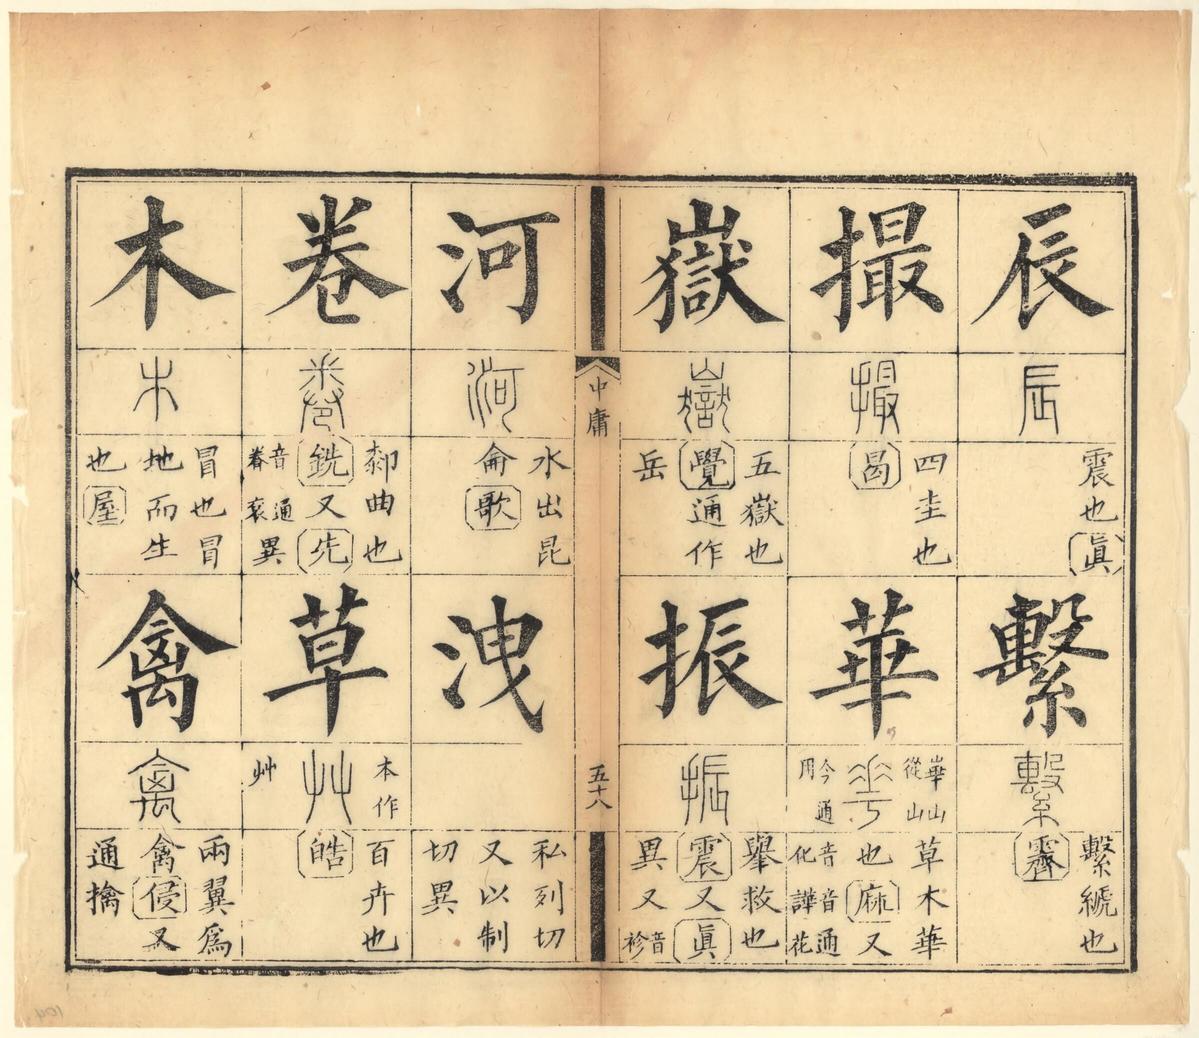 辰
辰
震也眞
繫
繫
繫綐也
霽
撮
撮
四圭也
曷
華
崋山從山
華
今通用
草木華也麻又音譁音化通花
嶽
嶽
五嶽也覺通作岳
振
振
舉救也震又眞異又音袗
中庸
五十八
河
河
水出昆侖歌
洩
私列切又以制切異
卷
卷
厀曲也銑又先異音眷通袞
草
本作
艸
艸
百卉也皓
木
木
冒也冒地而生也屋
禽
禽
兩翼爲禽侵又通擒
104